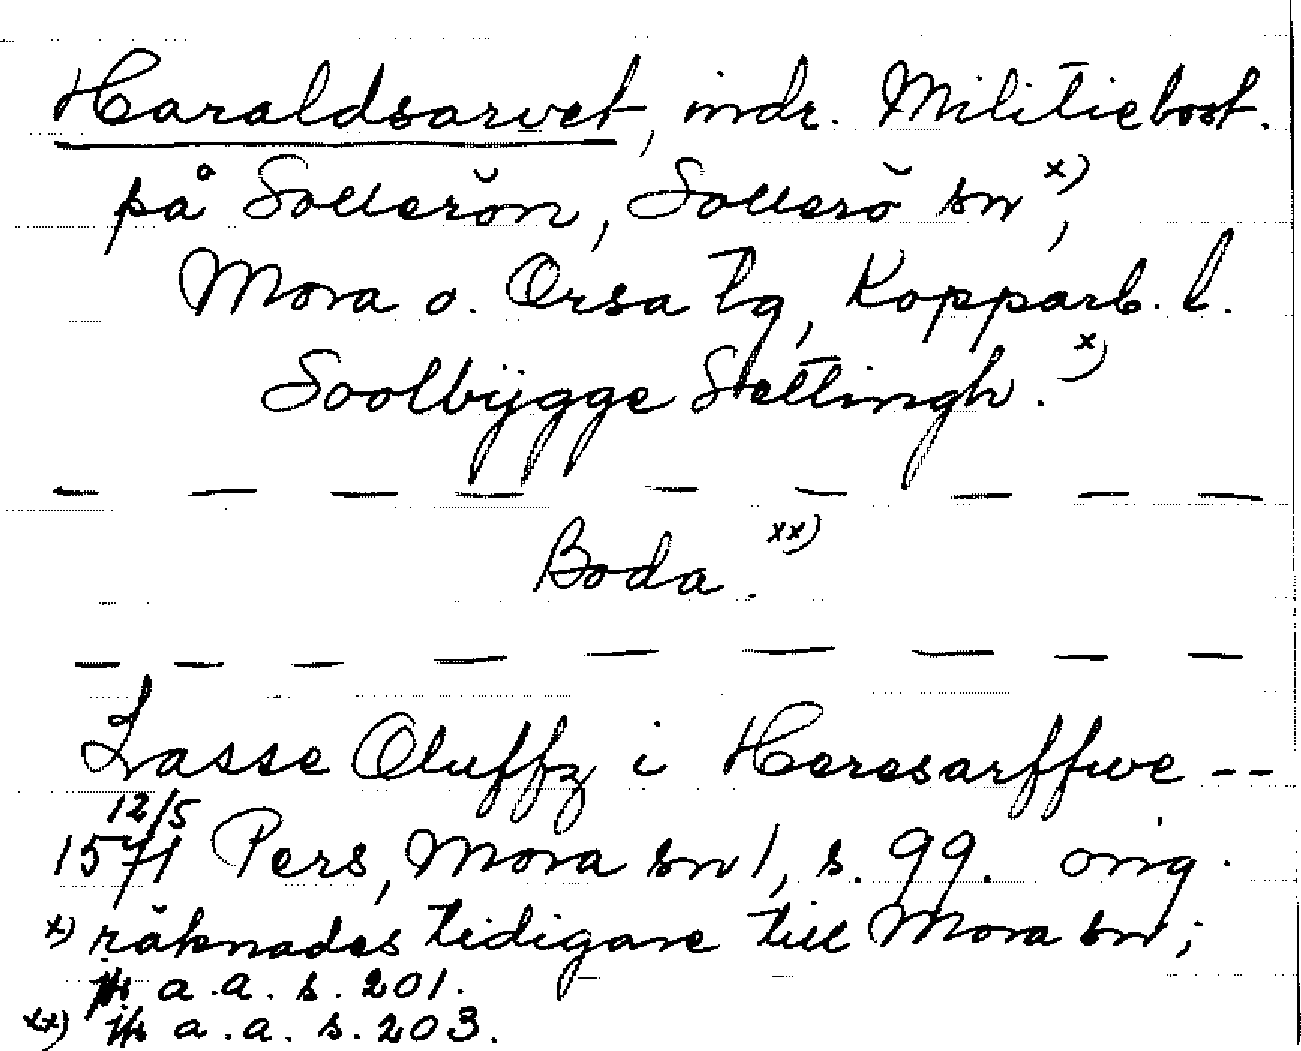 Haraldsarvet, indr. Militiebost.
på Sollerön, Sollerö sn x),
Mora o. Orsa tg, Kopparb. l.
Soolbÿgge Settingh. x)
Boda. xx)
Lasse Oluffz i Heresarffwe --
12/5
1571 Pers, Mora sn 1, s. 99. orig.
x) räknades tidigare till Mora sn;
jfr a.a. s. 201.
xx) jfr a.a. s. 203.